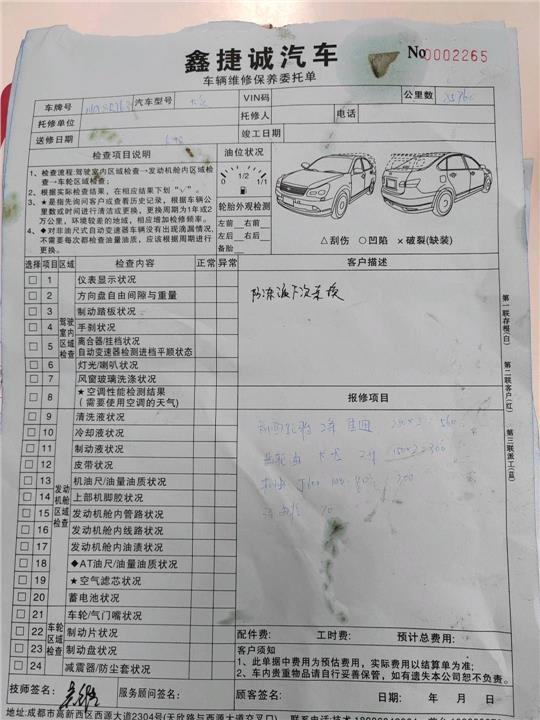 鑫捷诚汽车
车辆维修保养委托单
No 0002265
车牌号 汽车型号 VIN码 公里数
托修单位 托修人 电话
送修日期 竣工日期
检查项目说明 油位状况
1、检查流程:驾驶室内区域检查→发动机舱内区域检查→车轮区域检查;
2、根据实际检查结果,在相应结果下划“√”。
3、★是指先询问客户或查看历史记录,根据车辆公里数或时间进行清洁或更换,更换周期为1年或2万公里,环境较差的地域,相应增加检修频率。
4、◆对非油尺式自动变速器车辆没有出现滴漏情况,不需要每次都检查油量油质,应该根据周期进行更换。
0 1/2 1/1
轮胎外观检测
左前 右前
左后 右后
备胎
△刮伤 ○凹陷 ×破裂(缺装)
选择 项目 区域 检查内容 正常 异常 客户描述
驾驶室内区域检查
1 仪表显示状况
2 方向盘自由间隙与重量
3 制动踏板状况
4 手刹状况
5 离合器/挂档状况
自动变速器检测进档平顺状态
6 灯光/喇叭状况
7 风窗玻璃洗涤状况
8 ★空调性能检测结果
(需要使用空调的天气)
防冻液下次来换
报修项目
发动机舱区域检查
9 清洗液状况
10 冷却液状况
11 制动液状况
12 皮带状况
13 机油尺/油量油质状况
14 上部机脚胶状况
15 发动机舱内管路状况
16 发动机舱内线路状况
17 发动机舱内油渍状况
18 ◆AT油尺/油量油质状况
19 ★空气滤芯状况
20 蓄电池状况
车轮区域检查
21 车轮/气门嘴状况
22 制动片状况
23 制动盘状况
24 减震器/防尘套状况
560
300
200
第一联存根(白)
第二联客户(红)
第三联派工(蓝)
配件费: 工时费: 预计总费用:
客户须知
1、此单据中费用为预估费用,实际费用以结算单为准;
2、车内贵重物品请自行妥善保管,如有遗失本公司恕不负责。
技师签名: 服务顾问签名: 顾客签名: 日期: 年 月 日
地址:成都市高新西区西源大道2304号(天欣路与西源大道交叉口)